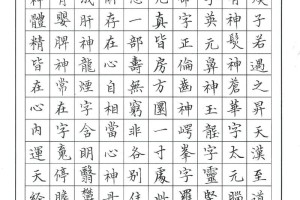 子若遇之昇天漢至道
神髮神蒼華字太元腦
英玄鼻神玉壟字靈堅
字正倫齒神崿峯字羅
真皆有房方圓一寸處此
一部壽無窮非各別住
存在心自相當心神丹
成肝神龍煙字含明翳鬱
育嬰脾神常在字魂停膽
神體精皆在心內運天經